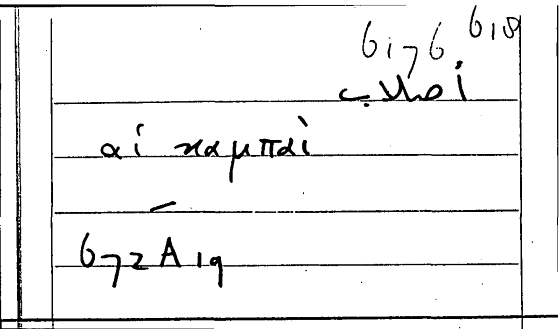 6176 618
αἱ καμπαὶ
672A19